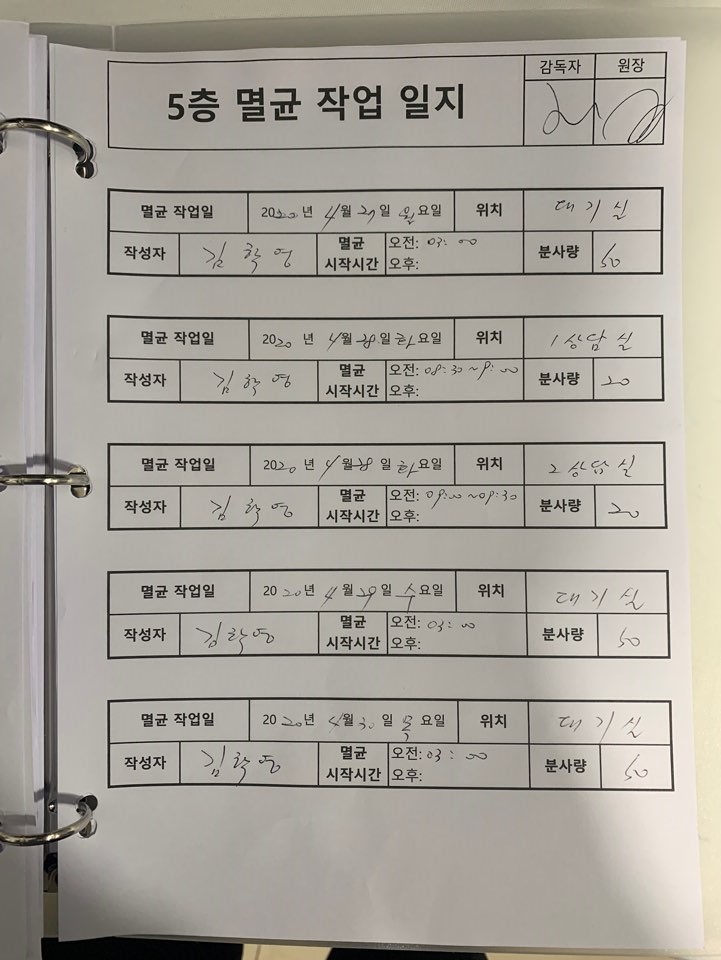 5층 멸균 작업 일지
감독자 원장
멸균 작업일 2020년 4월 27일 월요일 위치 대기실
작성자 김학영 멸균 시작시간 오전: 03:00 오후: 분사량 50
멸균 작업일 2020년 4월 28일 화요일 위치 1상담실
작성자 김학영 멸균 시작시간 오전: 08:30~9:00 오후: 분사량 20
멸균 작업일 2020년 4월 28일 화요일 위치 2상담실
작성자 김학영 멸균 시작시간 오전: 09:00~09:30 오후: 분사량 20
멸균 작업일 2020년 4월 29일 수요일 위치 대기실
작성자 김학영 멸균 시작시간 오전: 03:00 오후: 분사량 50
멸균 작업일 2020년 4월 30일 목요일 위치 대기실
작성자 김학영 멸균 시작시간 오전: 03:00 오후: 분사량 50